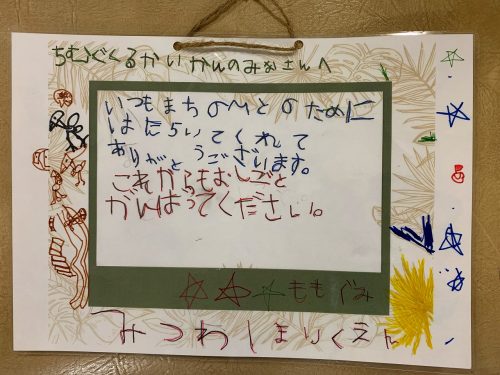 ちむぐくるかいかんのみなさんへ
いつもまちのひとのために
はたらいてくれて
ありがとうございます。
これからもおしごと
がんばってください。
ももぐみ
みつわしまいくえん